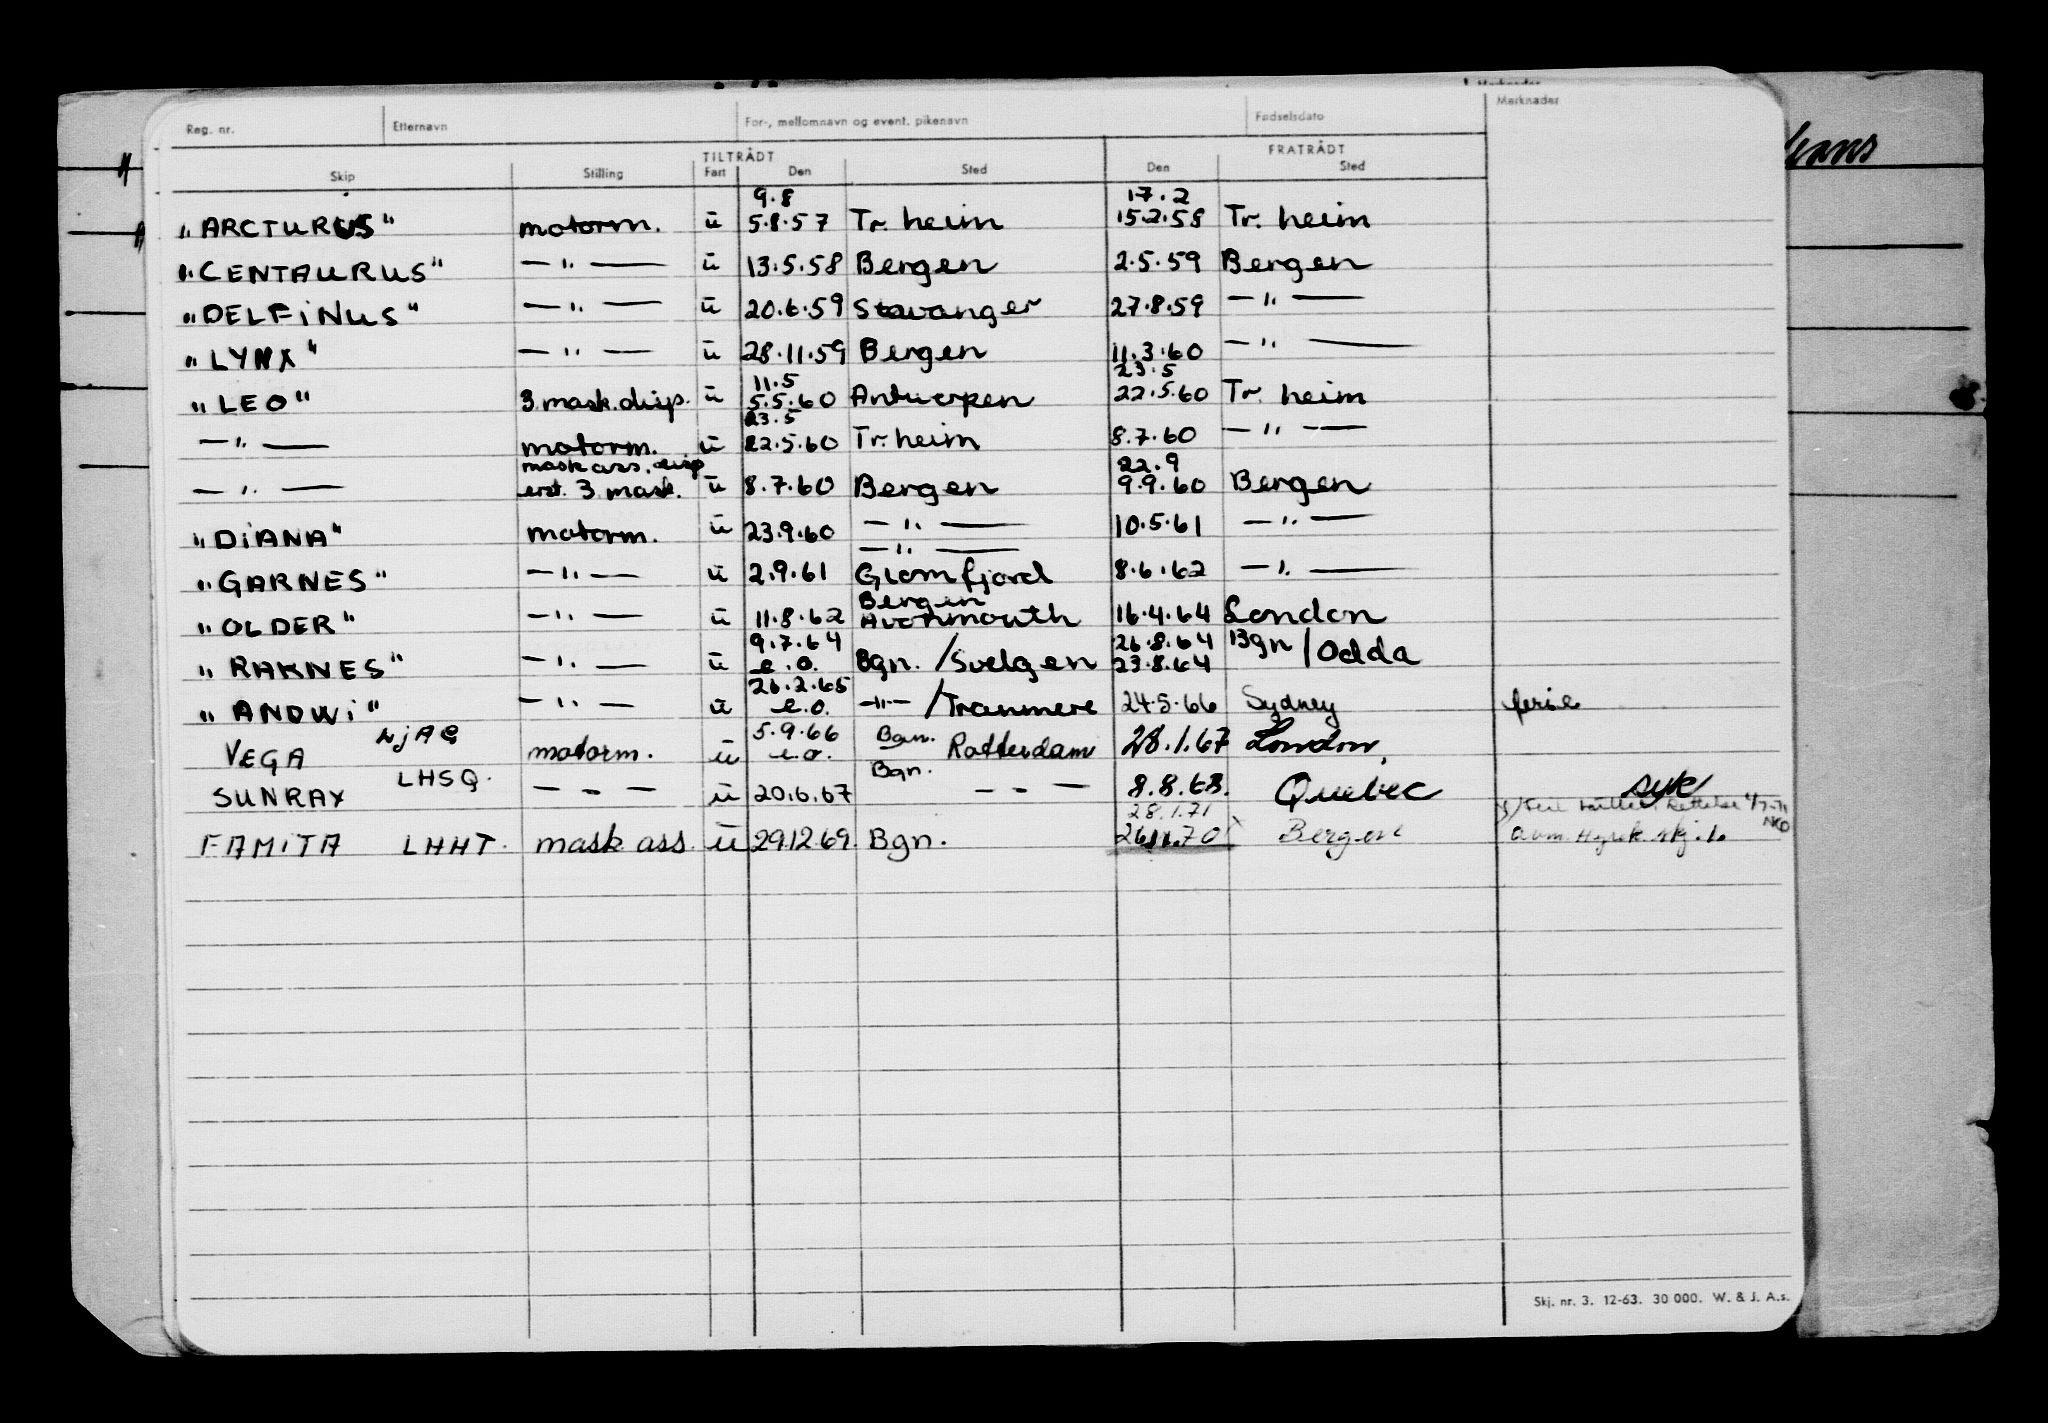 Merknader
Reg. nr. Etternavn For-, mellomnavn og event. pikenavn Fødselsdato
TILTRÅDT FRATRÅDT
Skip Stilling Fart Den Sted Den Sted
9.8 17.2
"ARCTURUS" motorm. u 5.8.57 Tr. heim 15.2.58 Tr. heim
"CENTAURUS" — " — u 13.5.58 Bergen 2.5.59 Bergen
"DELFINUS" — " — u 20.6.59 Stavanger 27.8.59 — " —
"LYNX" — " — u 28.11.59 Bergen 11.3.60 — " —
11.5 23.5
"LEO" 3. mask. disp. u 5.5.60 Antwerpen 22.5.60 Tr. heim
23.5
— " — motorm. u 22.5.60 Tr. heim 8.7.60 — " —
mask ass. disp 22.9
— " — erst. 3 mask. u 8.7.60 Bergen 9.9.60 Bergen
"DIANA" motorm. u 23.9.60 — " — 10.5.61 — " —
— " —
"GARNES" — " — u 2.9.61 Glomfjord 8.6.62 — " —
Bergen
"OLDER" — " — u 11.8.62 Avonmouth 16.4.64 London
9.7.64 26.8.64
"RAKNES" — " — u e.o. Bgn. /Svelgen 23.8.64 Bgn /Odda
26.2.65
"ANDWI" — " — u e.o. —"— /Tranmere 24.5.66 Sydney ferie
LJAG 5.9.66 Bgn.
VEGA motorm. u e.o. Rotterdam 28.1.67 London
LHSQ. Bgn.
SUNRAY — - — u 20.6.67 - - — 8.8.68. Quebec syk
28.1.71
FAMITA LHHT. mask ass u 29.12.69. Bgn. 26.11.70 Bergen avm. Hyrek. skj. 6
Skj. nr. 3. 12-63. 30 000. W. & J. A.s.